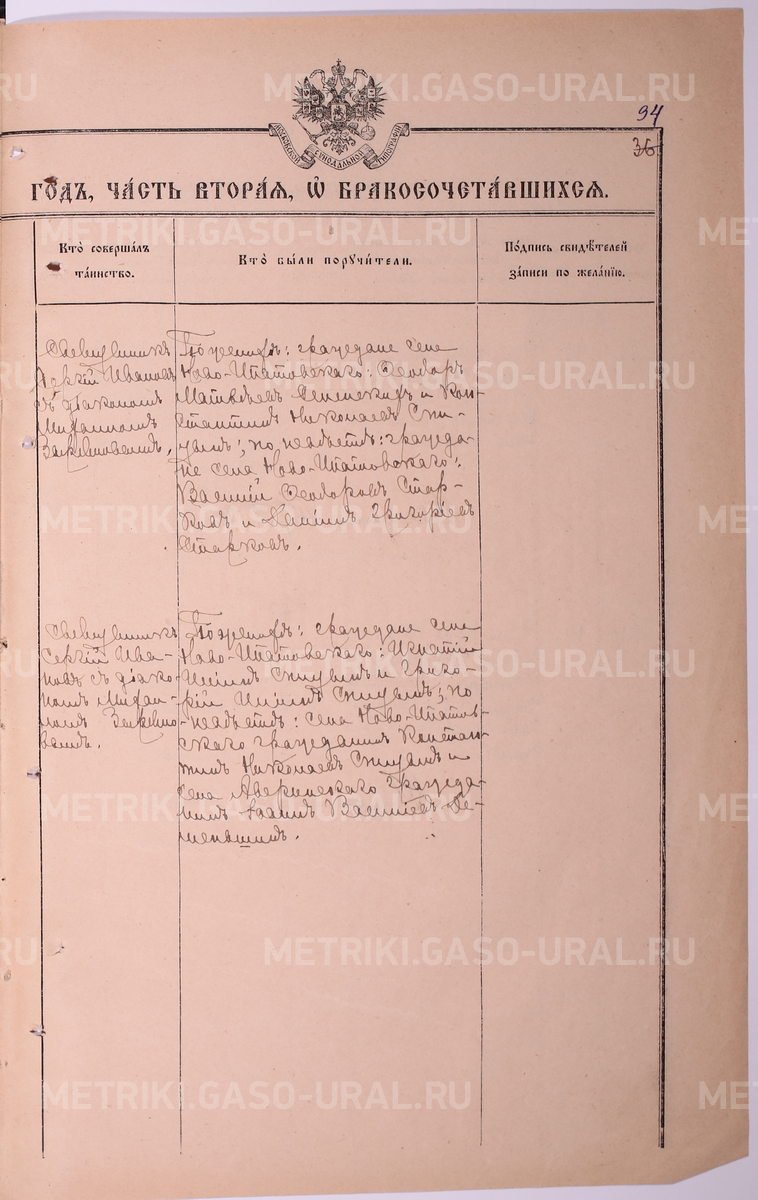 94
36
МОСКОВСКОЙ СѴНОДАЛЬНОЙ ТИПОГРАФІИ
ГОДЪ, ЧАСТЬ ВТОРАЯ, Ѡ БРАКОСОЧЕТАВШИХСЯ.
Кто совершалъ
таинство.
Кто были поручители.
Подпись свидѣтелей
записи по желанію.
Священникъ
Сергій Ивановъ
съ діакономъ
По женихѣ: граждане села
Ново-Ипатовскаго: Ѳеодоръ
Матвѣевъ и Кон-
стантинъ Николаевъ Сни-
по невѣстѣ: гражда-
не села Ново-Ипатовскаго:
Василій Ѳеодоровъ Стар-
ковъ и Григоріевъ
Старковъ.
Священникъ
Сергій Ива-
новъ съ діако-
номъ
По женихѣ: граждане села
Ново-Ипатовскаго: Игнатій
и Григо-
рій по
невѣстѣ: села Ново-Ипатов-
скаго гражданинъ Констан-
тинъ Николаевъ и
села Аверинскаго гражда-
нинъ Іоаннъ Василіевъ Де-
меньшинъ.
METRIKI.GASO-URAL.RU